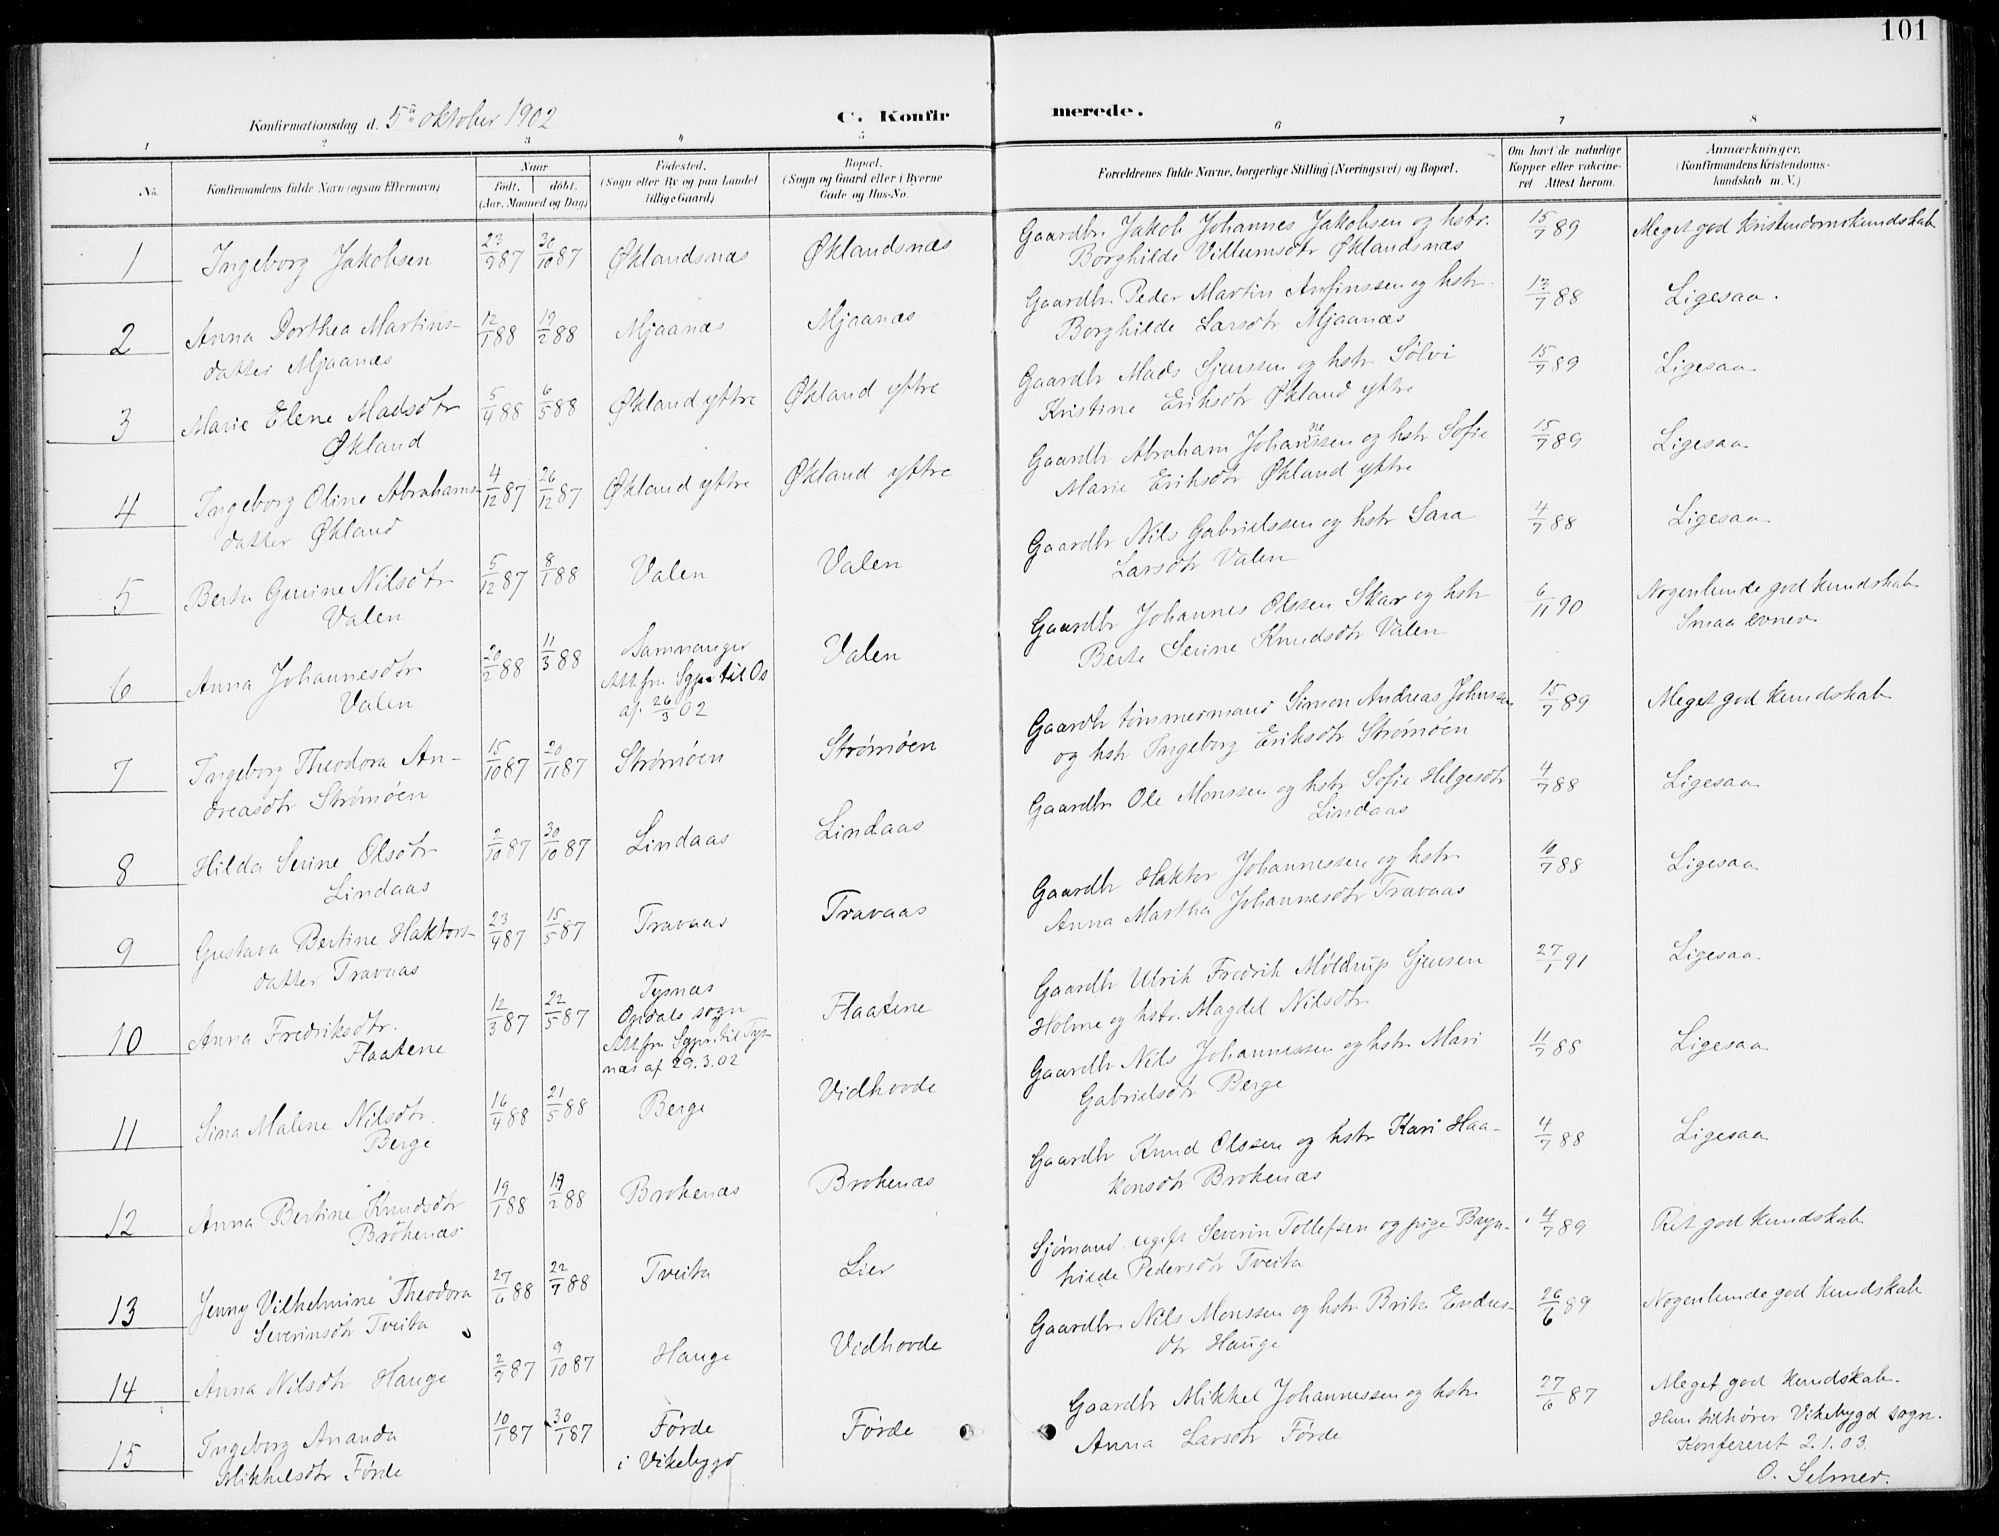 101
Konfirmationsdag d. 5te oktober 1902
C. Konfirmerede.
1 2 3 4 5 6 7 8
No. Konfirmandens fulde Navn (ogsaa Efternavn) Naar Født. døbt. (Aar, Maaned og Dag) Fødested. (Sogn eller By og paa Landet tillige Gaard) Bopæl. (Sogn og Gaard eller i Byerne Gade og Hus-No. Forældrenes fulde Navne, borgerlige Stilling (Næringsvei) og Bopæl. Om havt de naturlige Kopper eller vakcineret Attest herom. Anmærkninger. (Konfirmandens Kristendomskundskab m. V.)
1 Ingeborg Jakobsen 23/9 87 30/10 87 Øklandsnæs Øklandsnæs Gaardbr. Jakob Johannes Jakobsen og hstr. Borghilde Villumsdtr Øklandsnæs 15/7 89 Meget god kristendomskundskab
2 Anna Dorthea Martinsdatter Mjaanæs 12/1 88 19/2 88 Mjaanæs Mjaanæs Gaardbr. Peder Martin Anfinssen og hstr. Borghilde Larsdtr Mjaanæs 13/7 88 Ligesaa.
3 Marie Elene Madsdtr Økland 5/4 88 6/5 88 Økland yttre Økland yttre Gaardbr Mads Sjurssen og hstr Sølvi Kristine Eriksdtr Økland yttre 15/7 89 Ligesaa
4 Ingeborg Oline Abrahamsdatter Økland 4/12 87 26/12 87 Økland yttre Økland yttre Gaardbr Abraham Johannessen og hstr Sofie Marie Eriksdtr Økland yttre 15/7 89 Ligesaa
5 Berta Gurine Nilsdtr Valen 5/12 87 8/1 88 Valen Valen Gaardbr Nils Gabrielssen og hstr Sara Larsdtr Valen 4/7 88 Ligesaa
6 Anna Johannesdtr Valen 20/2 88 11/3 88 Samnanger Att fra Sgpr til Os af 26/3 02 Valen Gaardbr Johannes Olssen Skar og hstr Berte Serine Knudsdtr Valen 6/11 90 Nogenlunde god kundskab Smaa evner
7 Ingeborg Theodora Andreasdtr Strømøen 15/10 87 20/11 87 Strømøen Strømøen Gaardbr tømmermand Simon Andreas Johnssen og hstr Ingeborg Eriksdtr Strømøen 15/7 89 Meget god kundskab
8 Hilda Serine Olsdtr Lindaas 2/10 87 30/10 87 Lindaas Lindaas Gaardbr Ole Monssen og hstr Sofie Helgesdtr Lindaas 4/7 88 Ligesaa
9 Gustava Bertine Haktorsdatter Travaas 23/4 87 15/5 87 Travaas Travaas Gaardbr Haktor Johannessen og hstr. Anna Martha Johannesdtr Travaas /7 88 Ligesaa
10 Anna Fredriksdtr. Flaatene 12/3 87 22/5 87 Tysnæs Opdals sogn Att fra Sgpr. til Tysnæs af 29.3.02 Flaatene Gaardbr Ulrik Fredrik Møldrup Sjursen Holme og hstr. Magdel Nilsdtr 27/1 91 Ligesaa
11 Sina Malene Nilsdtr. Berge 16/4 88 21/5 88 Berge Vidhovde Gaardbr Nils Johannessen og hstr Mari Gabrielsdtr Berge 11/7 88 Ligesaa
12 Anna Bertine Knudsdtr Brokenæs 19/1 88 19/2 88 Brokenæs Brokenæs Gaardbr Knud Olssen og hstr Kari Haakonsdtr Brokenæs 4/7 88 Ligesaa
13 Jenny Vilhelmine Theodora Severinsdtr Tveita 27/6 88 22/7 88 Tveita Lier Sjømand, ugift Severin Tollefsen og pige Brynhilde Pedersdtr Tveita 4/7 89 Ret god kundskab
14 Anna Nilsdtr Hauge 2/9 87 9/10 87 Hauge Vidhovde Gaardbr. Nils Monssen og hstr Brita Endresdtr Hauge 26/6 89 Nogenlunde god kundskab
15 Ingeborg Ananda Mikkelsdtr Førde 10/1 87 30/1 87 Førde i Vikebygd Førde Gaardbr Mikkel Johannessen og hstr Anna Larsdtr Førde 27/6 87 Meget god kundskab. Hun tilhører Vikebygd sogn. Konfereret 2.1.03. O. Selmer.